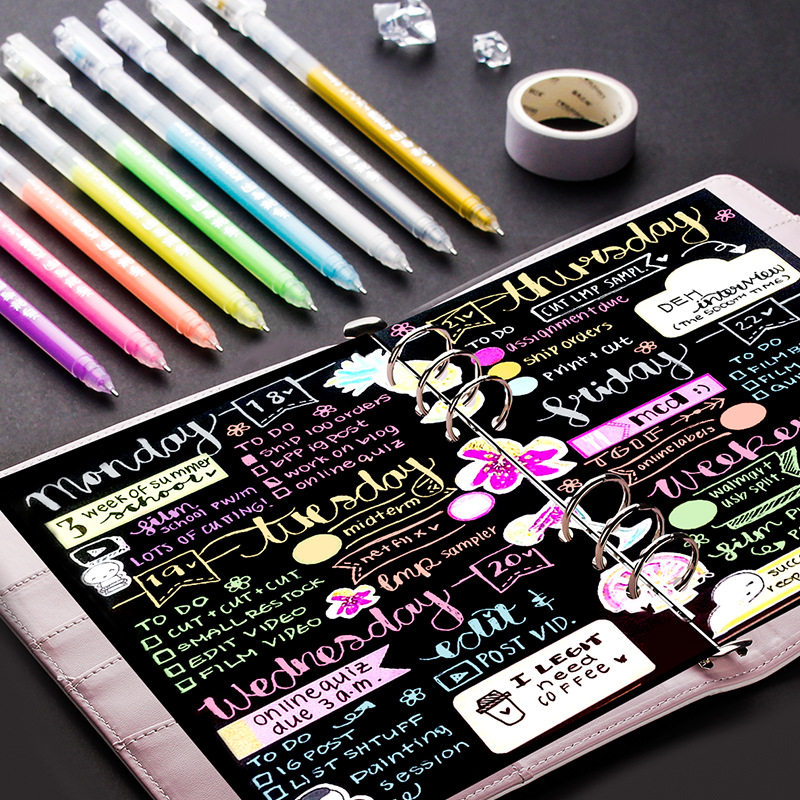 monday
18
3 week of summer school
TO DO
SHIP 100 ORDERS
BPP IG POST
WORK ON BLOG
ONLINE QUIZ
film
SCHOOL PW/M
LOTS OF CUTING!
tuesday
19
midterm
netflix
lmp sampler
TO DO
CUT + CUT + CUT
SMALL RESTOCK
EDIT VIDEO
FILM VIDEO
wednesday
20
online quiz
due 3 a.m.
edit &
POST VID.
TO DO
IG POST
LIST SHTUFF
painting
session
I LEGIT
need
COFFEE
thursday
21
CUT LMP SAMPL
TO DO
assignment due
ship orders
print + cut
DEM interview
(THE 5000TH TIME)
friday
22
mcd :)
TGIF
onlinelabels
TO DO
FILM
FILM
weeke
walmart
usb split
film
succ